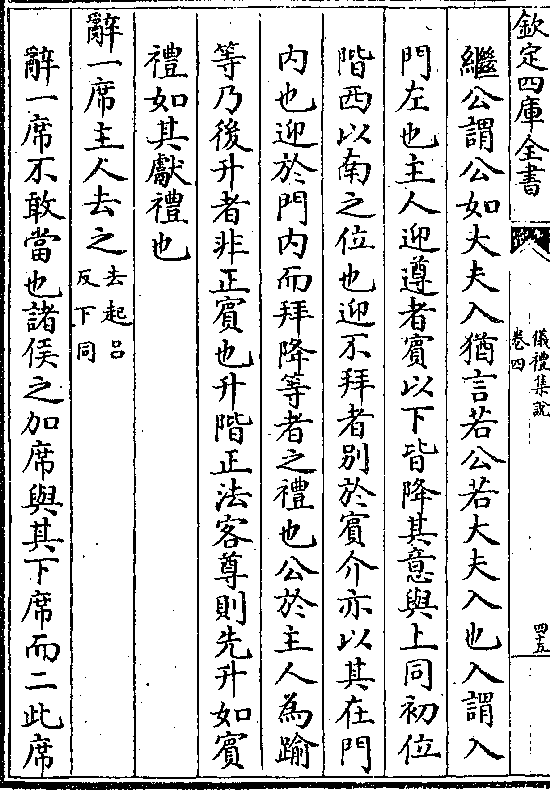 欽定四庫全書
儀禮集說
卷四
四十五
繼公謂公如大夫入猶言若公若大夫入也入謂入
門左也主人迎遵者賓以下皆降其意與上同初位
階西以南之位也迎不拜者别於賓介亦以其在門
内也迎於門内而拜降等者之禮也公於主人為踰
等乃後升者非正賓也升階正法客尊則先升如賓
禮如其獻禮也
辭一席主人去之去起吕
反下同
辭一席不敢當也諸侯之加席與其下席而二此席